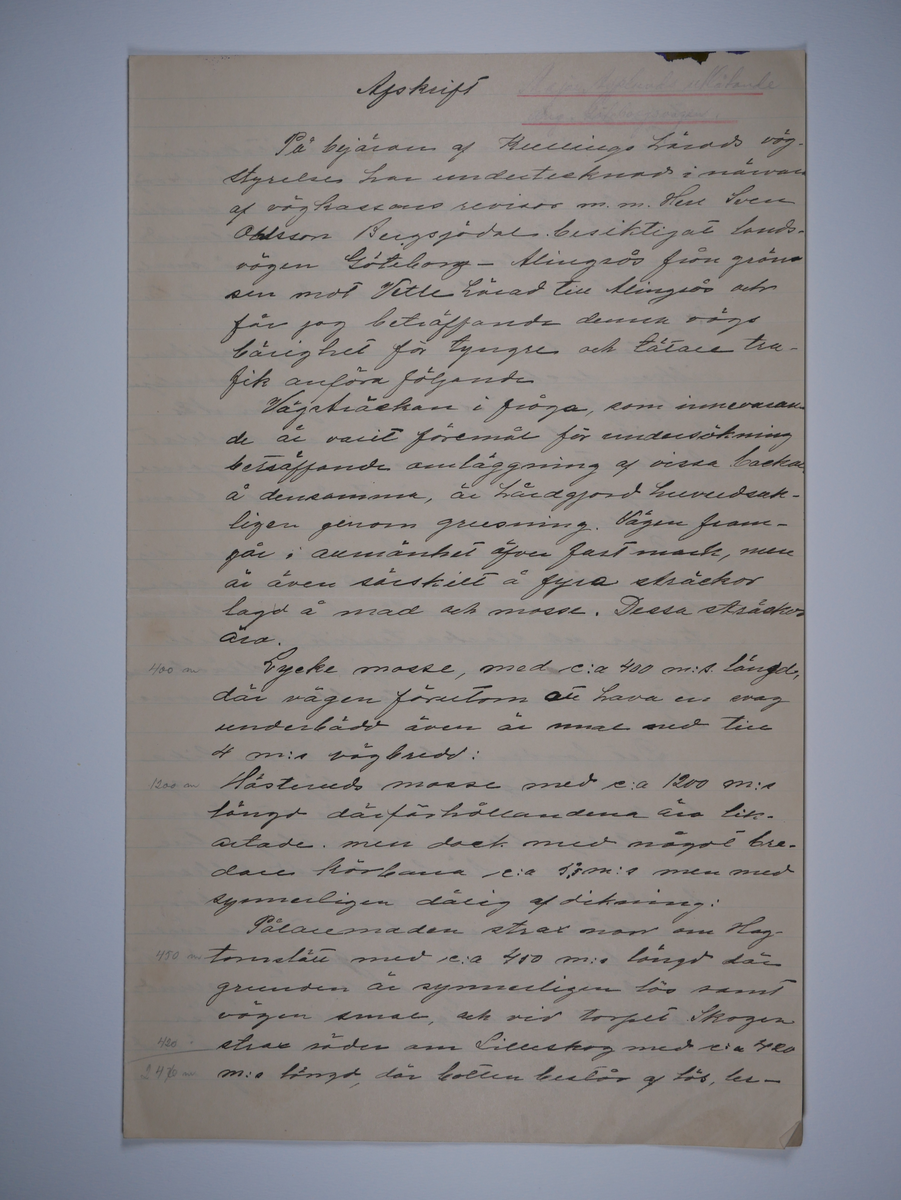 Afskrift
På begäran af Kullings härads väg-
styrelse har undertecknad i närvaro
af vägkassans revisor m. m. Herr Sven
Ohlsson Bergsjödal besiktigat lands-
vägen Göteborg – Alingsås från grän-
sen mot Vettle härad till Alingsås och
får jag beträffande denna vägs
bärighet för tyngre och tätare tra-
fik anföra följande
Vägsträckan i fråga, som innevaran-
de år varit föremål för undersökning
beträffande omläggning af vissa backar
å densamma, är hårdgjord huvudsak-
ligen genom grusning. Vägen fram-
går i allmänhet öfver fast mark, men
är även särskilt å fyra sträckor
lagd å mad och mosse. Dessa sträckor
äro.
400 m Lycke mosse, med c:a 400 m:s längd,
där vägen förutom att hava en svag
underbädd även är smal ned till
4 m:s vägbredd:
1200 m mosse med c:a 1200 m:s
längd där förhållandena äro lik-
artade. men dock med något bre-
dare körbana c:a m:s men med
synnerligen dålig afdikning:
strax norr om Hag-
450 m tornslätt med c:a 450 m:s längd där
grunden är synnerligen lös samt
vägen smal, och vid torpet Skogen
420 strax söder om Lilleskog med c:a 420
2470 m m:s längd, där botten består af lös,